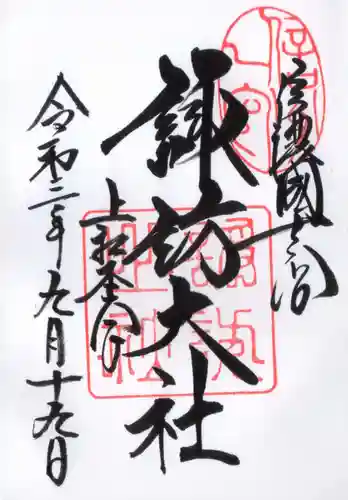 信濃國一之宮
諏訪大社
上社本宮
令和二年九月十九日
諏訪
大社